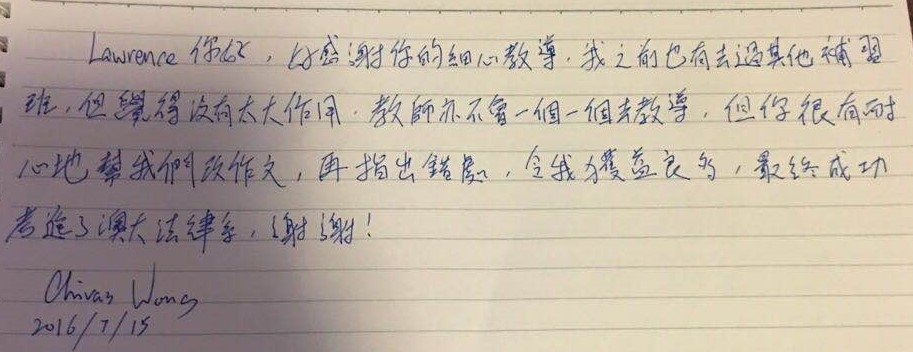 Lawrence 你好,好感謝你的細心教導.我之前也有去過其他補習
班,但覺得沒有太大作用.教師亦不會一個一個去教導,但你很有耐
心地幫我們改作文,再指出錯處,令我獲益良多,最終成功
考進了澳大法律系,謝謝!
Chivas Wong
2016/7/15